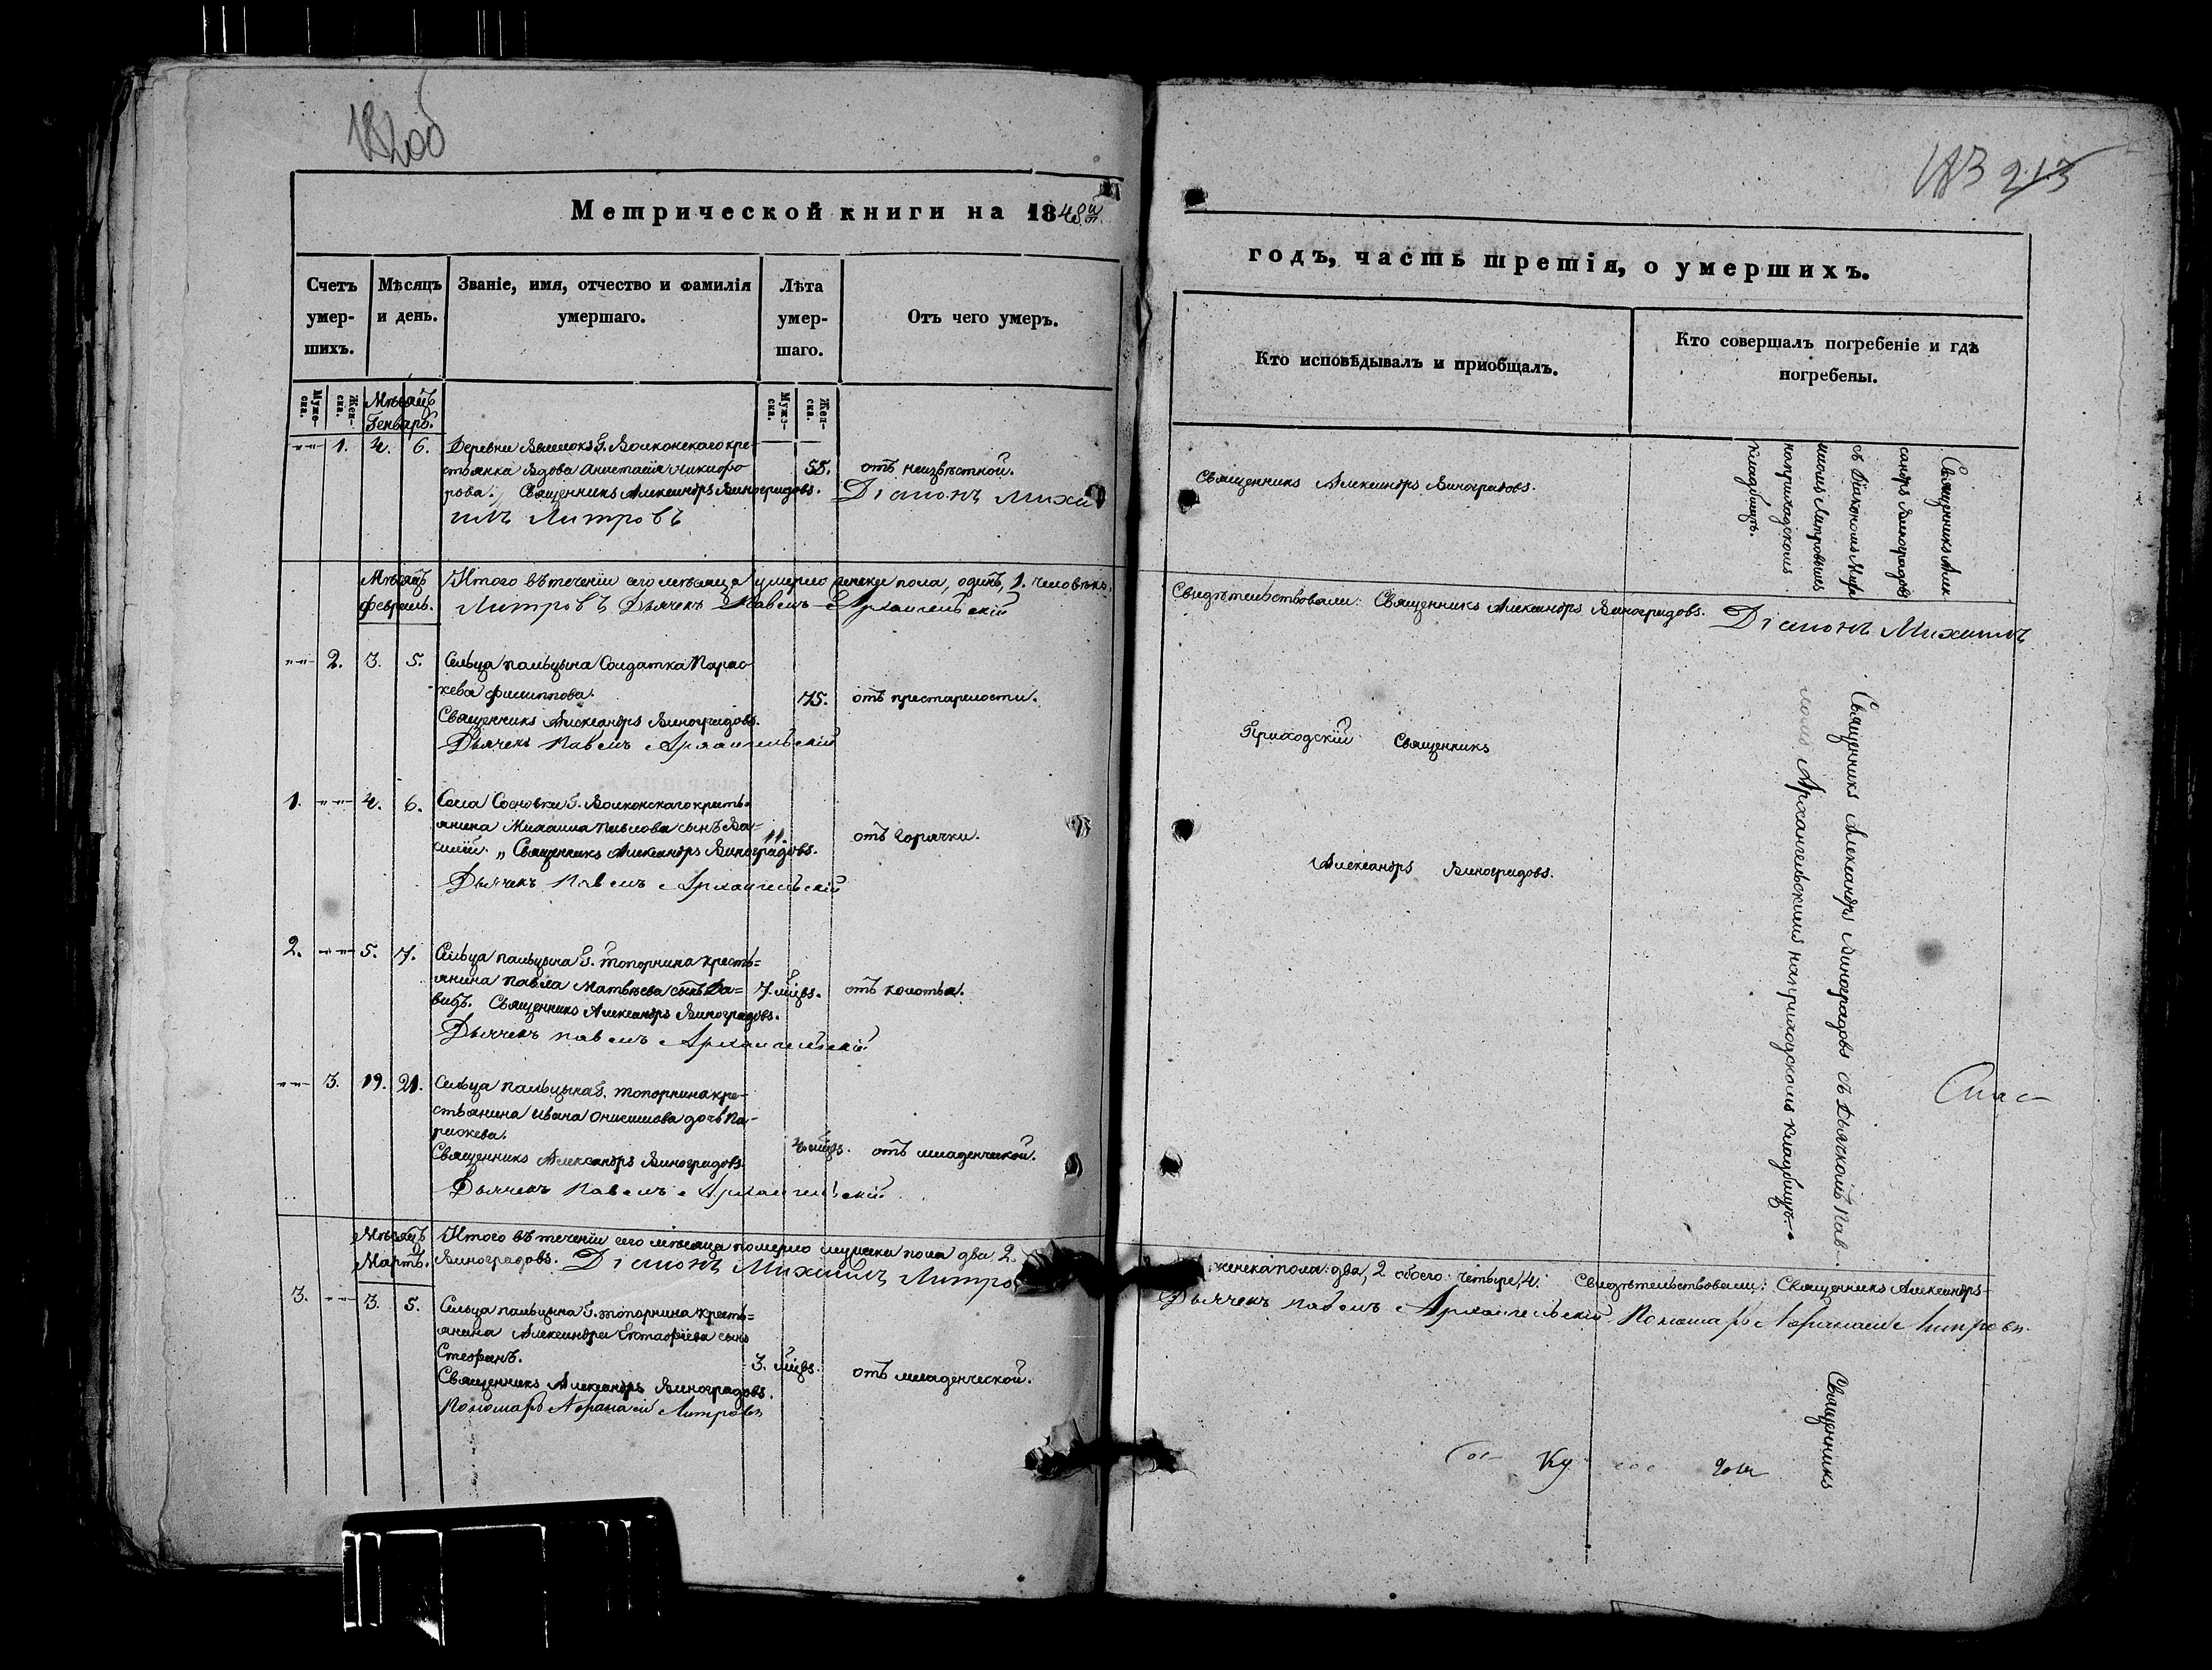 213
Метрической книги на 1848й
годъ, часть третія, о умершихъ.
Счетъ умер-
шихъ.
Мѣсяцъ
и день.
Званіе, имя, отчество и фамилія
умершаго.
Лѣта
умер-
шаго.
Отъ чего умеръ.
Кто исповѣдывалъ и приобщалъ.
Кто совершалъ погребеніе и гдѣ
погребены.
Муже-
ска.
Жен-
ска.
Мѣсяцъ
Генварь.
Муже-
ска.
Жен-
ска.
1. 4. 6. Деревни Г. Волконскаго кре-
стьянка Вдова Анастасія Никифо
рова. Священникъ Александръ Виноградовъ. Діаконъ Михаи
илъ Литровъ
55. отъ неизвѣстной.
Священникъ Александръ Виноградовъ.
Священникъ Алек
сандръ Виноградовъ
съ Діакономъ Миха
иломъ Литровымъ
на приходскомъ
кладбищѣ.
Мѣсяцъ
Февраль.
Итого въ теченіи сего мѣсяца умерло женска пола, одинъ, 1. человѣкъ.
Свидѣтельствовали: Священникъ Александръ Виноградовъ. Діаконъ Михаилъ
Литровъ Дьячекъ Павелъ Архангельскій
2. 3. 5. Сельца Пальцына Солдатка Парас-
кева Филиппова.
Священникъ Александръ Виноградовъ.
Дьячекъ Павелъ Архангельскій
75. отъ престарелости.
Приходскій Священникъ
Александръ Виноградовъ.
Священникъ Александръ Виноградовъ съ Дьячкомъ Пав-
ломъ Архангельскимъ на приходскомъ кладбищѣ.
1. 4. 6. Села Сосновки Г. Волконскаго кресть-
янина Михаила Павлова сынъ Ва-
силій. „ Священникъ Александръ Виноградовъ.
Дьячекъ Павелъ Архангельскій
11. отъ горячки.
2. 5. 7. Сельца Пальцына Г. Топорнина кресть=
янина Павла Матвѣева сынъ Да=
видъ. Священникъ Александръ Виноградовъ.
Дьячекъ Павелъ Архангельскій
7. мцвъ. отъ колотья.
3. 19. 21. Сельца Пальцына Г. Топорнина кре-
стьянина Ивана Онисимова дочь Па-
раскева.
Священникъ Александръ Виноградовъ
Дьячекъ Павелъ Архангельскій
4. мцвъ. отъ младенческой.
Мѣсяцъ
Мартъ.
Итого въ теченіи сего мѣсяца померло мужска пола два 2.
женска пола: два, 2 обоего: четыре, 4. Свидѣтельствовали: Священникъ Александръ
Виноградовъ. Діаконъ Михаилъ Литро
Дьячекъ Павелъ Архангельскій Пономарь Афанасій Литровъ.
3. 3. 5. Сельца Пальцына Г. Топорнина кресть=
янина Александра Евстафіева сынъ
Стефанъ.
Священникъ Александръ Виноградовъ.
Пономарь Афанасій Литровъ
3. мцвъ. отъ младенческой.
Священникъ
Спас